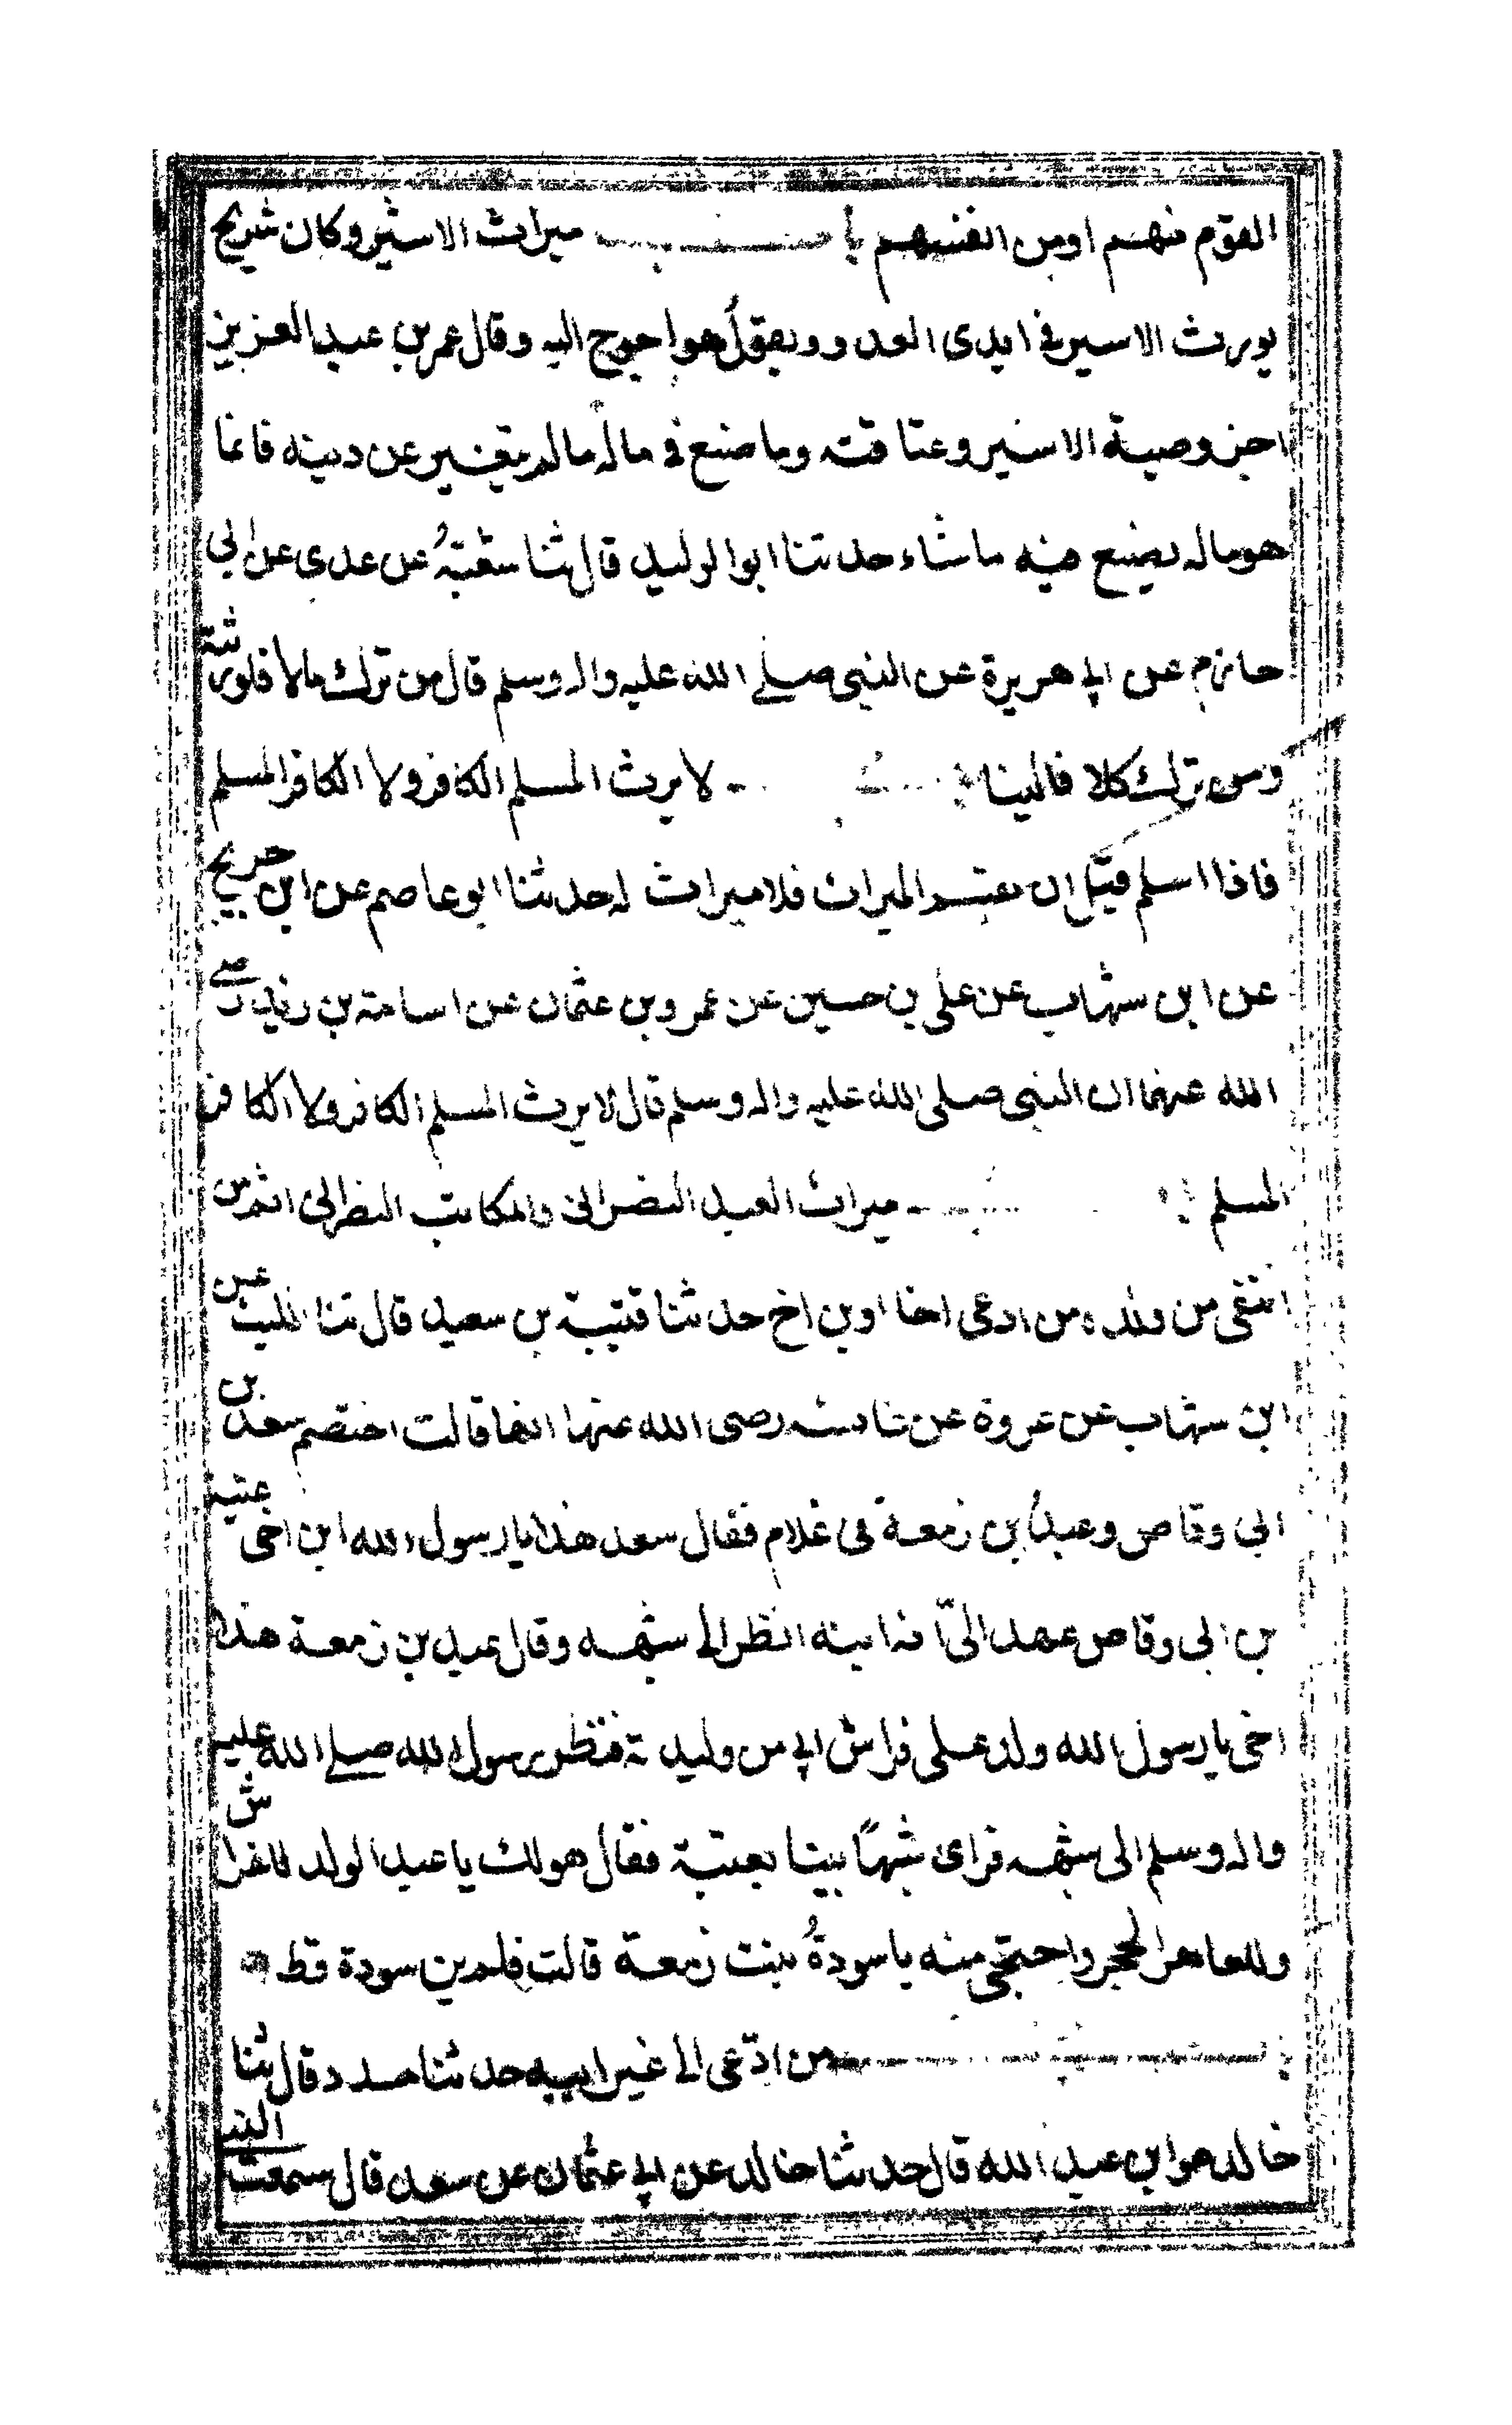 القوم منهم او من انفسهم باب ميراث الاسير وكان شريح
يورث الاسير فى ايدى العدو ويقول هو احوج اليه وقال عمر بن عبد العزيز
اجز وصية الاسير وعتاقته وما صنع فى ماله مالم يتغير عن دينه فانما
هو ماله يصنع فيه ما شاء حدثنا ابو الوليد قال ثنا شعبةُ عن عدى عن ابى
حازم عن ابى هريرة عن النبى صلى الله عليه واله وسلم قال من ترك مالا فلورثته
ومن ترك كلا فالينا لا يرث المسلم الكافر ولا الكافر المسلم
فاذا اسلم قبل ان يقتسم الميراث فلا ميراث له حدثنا ابو عاصم عن ابن جريج
عن ابن شهاب عن على بن حسين عن عمرو بن عثمان عن اسامة بن زيد رضى
الله عنهما ان النبى صلى الله عليه واله وسلم قال لا يرث المسلم الكافر ولا الكافر
المسلم ميراث العبد النصرانى والمكاتب النصرانى اثم من
انتفى من ولده من ادعى اخا او بن اخ حدثنا قتيبة بن سعيد قال ثنا الليث عن
ابن شهاب عن عروة عن عائشه رضى الله عنها انها قالت اختصم سعد بن
ابى وقاص وعبدُ بن زمعة فى غلام فقال سعد هذا يا رسول الله ابن اخى عتبة
بن ابى وقاص عهد الىّ انه ابنه انظر الى شبهه وقال عبد بن زمعة هذا
اخى يا رسول الله ولد على فراش ابى من وليدته فنظر رسول الله صلى الله عليه
واله وسلم الى شبهه فراى شبهًا بينا بعتبة فقال هو لك يا عبد الولد للفراش
وللعاهر الحجر واحتجبى منه يا سودةُ بنت زمعة قالت فلم ير سودة قط
من ادّعى الى غير ابيه حدثنا مسدد قال ثنا
خالد هو ابن عبد الله قال حدثنا خالد عن ابى عثمان عن سعد قال سمعت النبى